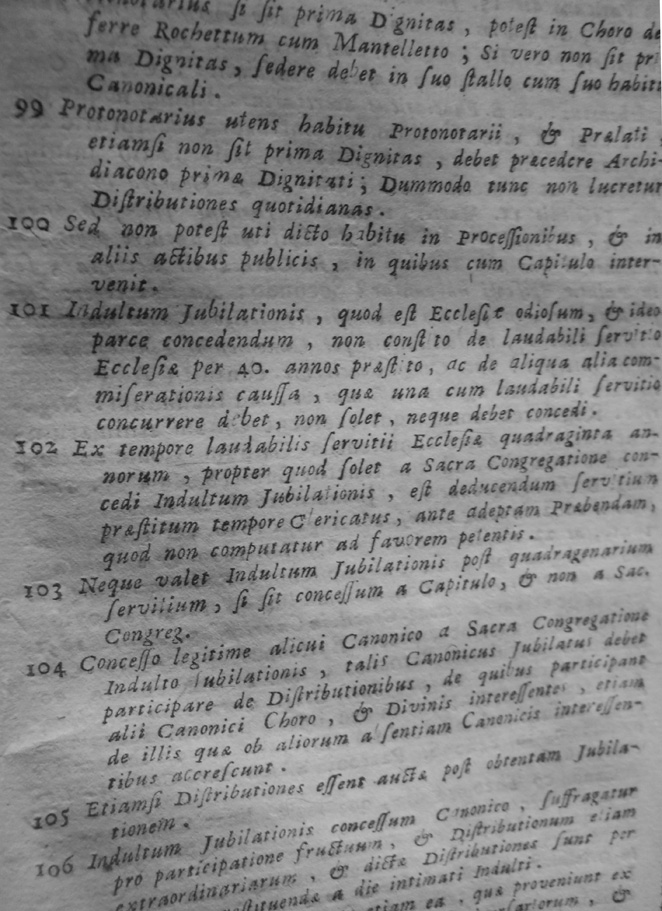 si sit prima Dignitas, potest in Choro de
ferre Rochettum cum Mantelletto; Si vero non sit pri
ma Dignitas, sedere debet in suo stallo cum suo habitu
Canonicali.
99 Protonotarius utens habitu Protonotarii, & Prælati,
etiamsi non sit prima Dignitas, debet præcedere Archi-
diacono primæ Dignitati; Dummodo tunc non lucretur
Distributiones quotidianas.
100 Sed non potest uti dicto habitu in Processionibus, & in
aliis actibus publicis, in quibus cum Capitulo inter-
venit.
101 Indultum Jubilationis, quod est Ecclesiæ odiosum, & ideo
parce concedendum, non constito de laudabili servitio
Ecclesiæ per 40. annos præstito, ac de aliqua alia com-
miserationis caussa, quæ una cum laudabili servitio
concurrere debet, non solet, neque debet concedi.
102 Ex tempore laudabilis servitii Ecclesiæ quadraginta an-
norum, propter quod solet a Sacra Congregatione con-
cedi Indultum Jubilationis, est deducendum servitium
præstitum tempore Clericatus, ante adeptam Præbendam,
quod non computatur ad favorem petentis.
103 Neque valet Indultum Jubilationis post quadragenarium
servitium, si sit concessum a Capitulo, & non a Sac.
Congreg.
104 Concesso legitime alicui Canonico a Sacra Congregatione
Indulto Jubilationis, talis Canonicus Jubilatus debet
participare de Distributionibus, de quibus participant
alii Canonici Choro, & Divinis interessentes, etiam
de illis quæ ob aliorum absentiam Canonicis interessen-
tibus accrescunt.
105 Etiamsi Distributiones essent auctæ post obtentam Jubila-
tionem.
106 Indultum Jubilationis concessum Canonico, suffragatur
pro participatione fructuum, & Distributionum etiam
extraordinariarum, & dictæ Distributiones sunt per
a die intimati Indulti.
etiam ea, quæ proveniunt ex
&